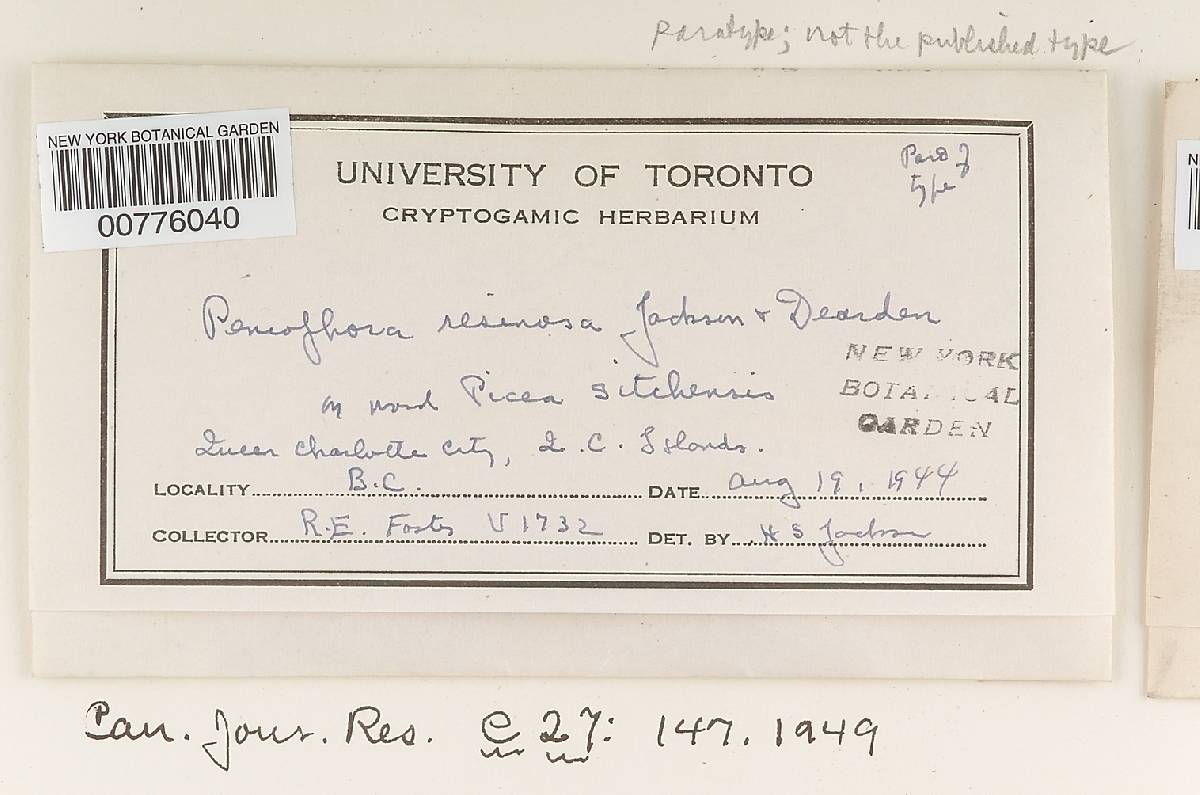 Paratype; not the published type
NEW YORK BOTANICAL GARDEN
00776040
UNIVERSITY OF TORONTO
CRYPTOGAMIC HERBARIUM
Part of
type
Peniophora resinosa Jackson & Dearden
on wood Picea sitchensis
NEW YORK
BOTANICAL
GARDEN
Queen Charlotte City, Q.C. Islands.
LOCALITY B.C. DATE Aug 19, 1944
COLLECTOR R.E. Foster V1732 DET. BY H S Jackson
Can. Jour. Res. C 27: 147. 1949
N